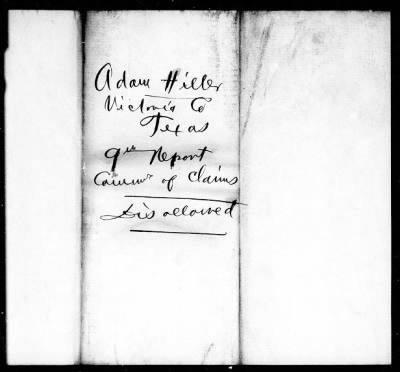 Adam Hiller
Victoria Co
Texas
9th Report
Commrs of Claims
Disallowed